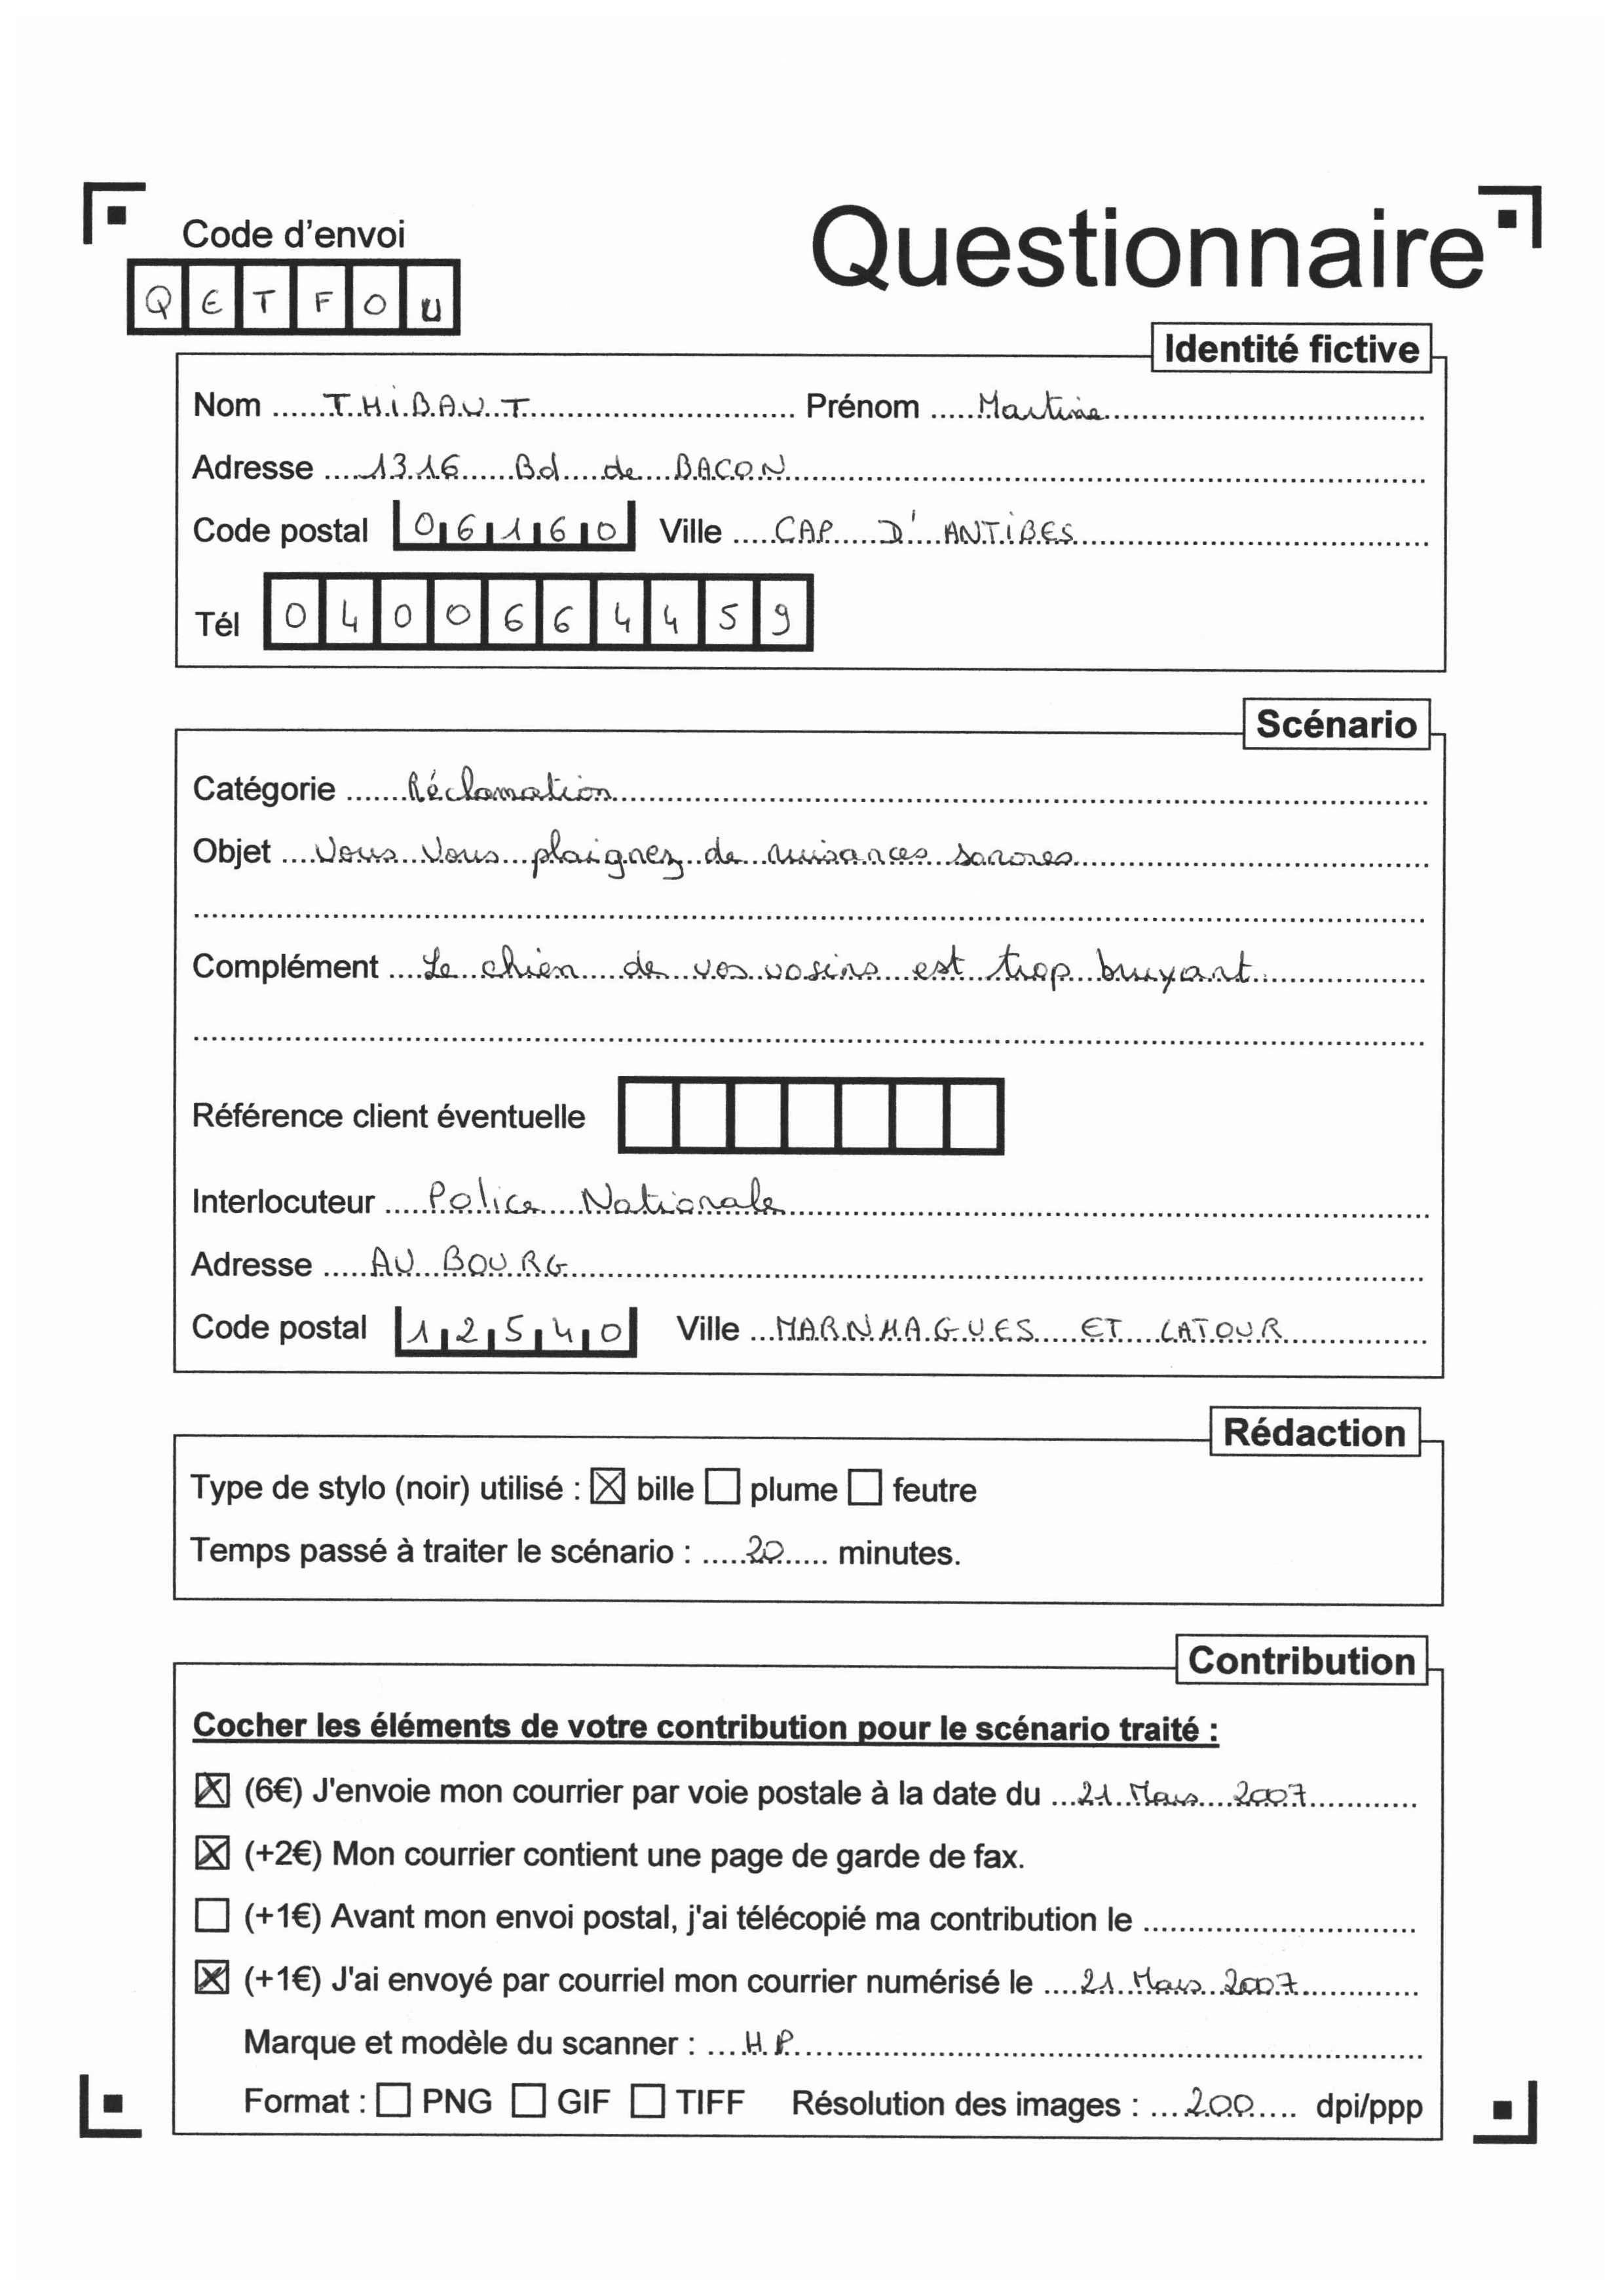 Code d'envoi
Questionnaire
Q E T F O U
Identité fictive
Nom THIBAUT Prénom Martine
Adresse 1316 Bd de BACON
Code postal 06160 Ville CAP D'ANTIBES
Tél 0400664459
Scénario
Catégorie Réclamation
Objet Vous Vous plaignez de nuisances sonores
Complément Le chien de vos vosins est trop bruyant
Référence client éventuelle
Interlocuteur Police Nationale
Adresse AU BOURG
Code postal 12540 Ville MARNHAGUES ET LATOUR
Rédaction
Type de stylo (noir) utilisé : ☒ bille ☐ plume ☐ feutre
Temps passé à traiter le scénario : 20 minutes.
Contribution
Cocher les éléments de votre contribution pour le scénario traité :
☒ (6€) J'envoie mon courrier par voie postale à la date du 21 Mars 2007
☒ (+2€) Mon courrier contient une page de garde de fax.
☐ (+1€) Avant mon envoi postal, j'ai télécopié ma contribution le
☒ (+1€) J'ai envoyé par courriel mon courrier numérisé le 21 Mars 2007
Marque et modèle du scanner : HP
Format : ☐ PNG ☐ GIF ☐ TIFF Résolution des images : 200 dpi/ppp